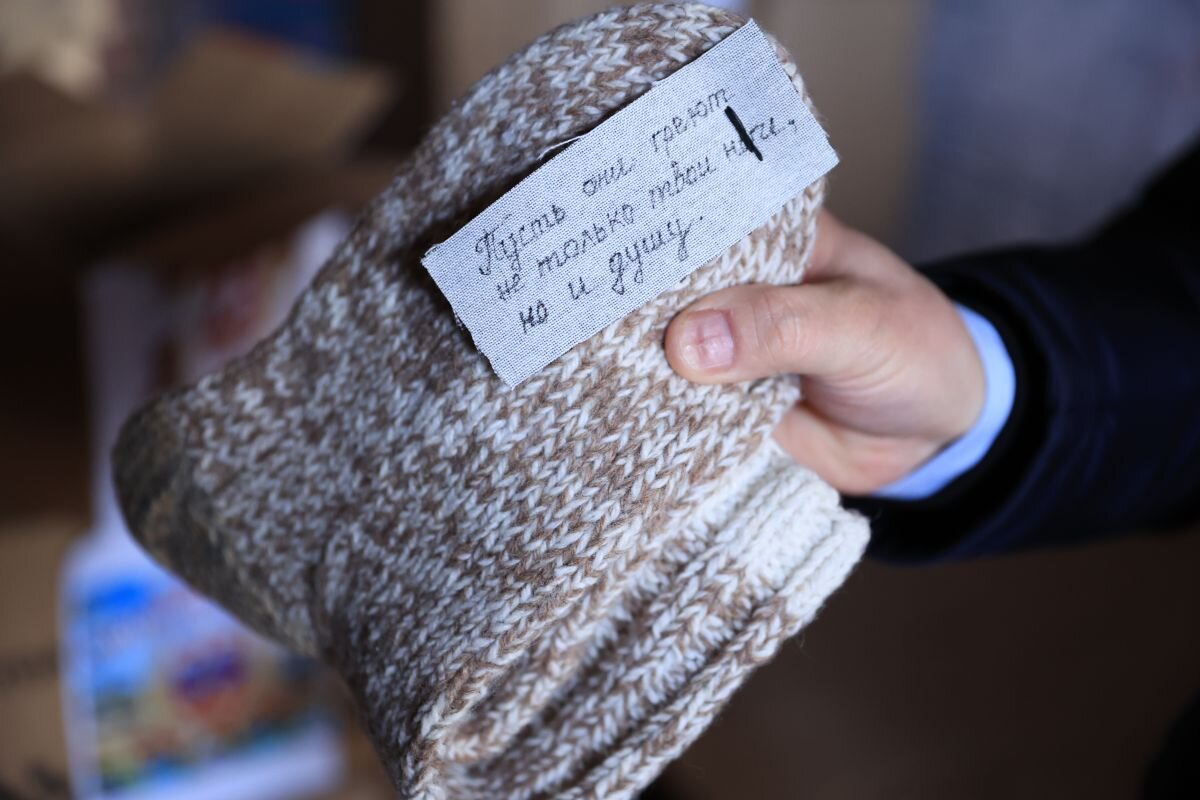 Пусть они греют
не только твои ноги,
но и душу.